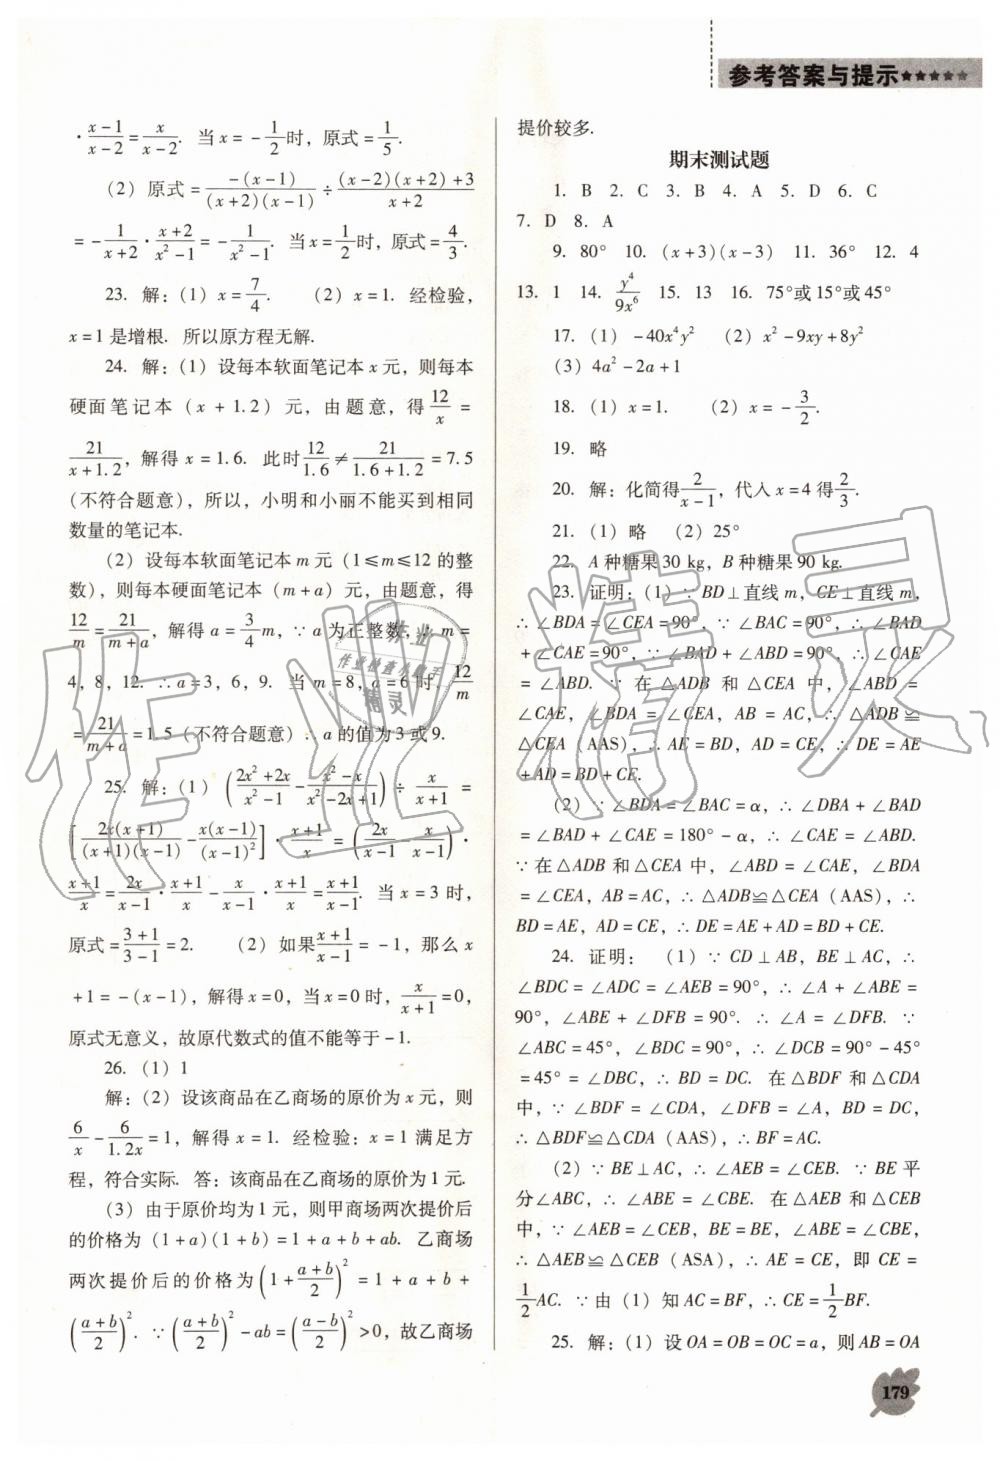 参考答案与提示★★★★★
·(x-1)/(x-2)=x/(x-2). 当x=-1/2时，原式=1/5.
(2) 原式=-(x-1)/((x+2)(x-1))÷((x-2)(x+2)+3)/(x+2)
=-1/(x+2)·(x+2)/(x²-1)=-1/(x²-1). 当x=1/2时，原式=4/3.
23. 解：(1) x=7/4. (2) x=1. 经检验，
x=1是增根. 所以原方程无解.
24. 解：(1) 设每本软面笔记本x元，则每本
硬面笔记本（x+1.2）元，由题意，得12/x=
21/(x+1.2)，解得x=1.6. 此时12/1.6≠21/(1.6+1.2)=7.5
(不符合题意)，所以，小明和小丽不能买到相同
数量的笔记本.
(2) 设每本软面笔记本m元（1≤m≤12的整
数），则每本硬面笔记本（m+a）元，由题意，得
12/m=21/(m+a)，解得a=3/4m，∵a为正整数，∴m=
4，8，12. ∴a=3，6，9. 当m=8，a=6时，12/m
=21/(m+a)=1.5（不符合题意）∴a的值为3或9.
25. 解：(1) ((2x²+2x)/(x²-1)-(x²-x)/(x²-2x+1))÷x/(x+1)=
[2x(x+1)/((x+1)(x-1))-x(x-1)/(x-1)²]·(x+1)/x=(2x/(x-1)-x/(x-1))·
(x+1)/x=2x/(x-1)·(x+1)/x-x/(x-1)·(x+1)/x=(x+1)/(x-1). 当x=3时，
原式=(3+1)/(3-1)=2. (2) 如果(x+1)/(x-1)=-1，那么x
+1=-(x-1)，解得x=0，当x=0时，x/(x+1)=0，
原式无意义，故原代数式的值不能等于-1.
26. (1) 1
解：(2) 设该商品在乙商场的原价为x元，则
6/x-6/1.2x=1，解得x=1. 经检验：x=1满足方
程，符合实际. 答：该商品在乙商场的原价为1元.
(3) 由于原价均为1元，则甲商场两次提价后
的价格为（1+a）(1+b)=1+a+b+ab. 乙商场
两次提价后的价格为(1+(a+b)/2)²=1+a+b+
((a+b)/2)². ∵((a+b)/2)²-ab=((a-b)/2)²>0，故乙商场
提价较多.
期末测试题
1. B 2. C 3. B 4. A 5. D 6. C
7. D 8. A
9. 80° 10. (x+3)(x-3) 11. 36° 12. 4
13. 1 14. y⁴/9x⁶ 15. 13 16. 75°或15°或45°
17. (1) -40x⁴y² (2) x²-9xy+8y²
(3) 4a²-2a+1
18. (1) x=1. (2) x=-3/2.
19. 略
20. 解：化简得2/(x-1)，代入x=4得2/3.
21. (1) 略 (2) 25°
22. A种糖果30 kg，B种糖果90 kg.
23. 证明：(1) ∵BD⊥直线m，CE⊥直线m，
∴∠BDA=∠CEA=90°，∵∠BAC=90°，∴∠BAD
+∠CAE=90°，∵∠BAD+∠ABD=90°，∴∠CAE
=∠ABD. ∵在△ADB和△CEA中，∠ABD=
∠CAE，∠BDA=∠CEA，AB=AC，∴△ADB≌
△CEA（AAS），∴AE=BD，AD=CE，∴DE=AE
+AD=BD+CE.
(2) ∵∠BDA=∠BAC=α，∴∠DBA+∠BAD
=∠BAD+∠CAE=180°-α，∴∠CAE=∠ABD.
∵在△ADB和△CEA中，∠ABD=∠CAE，∠BDA
=∠CEA，AB=AC，∴△ADB≌△CEA（AAS），∴
BD=AE，AD=CE，∴DE=AE+AD=BD+CE.
24. 证明：(1) ∵CD⊥AB，BE⊥AC，∴
∠BDC=∠ADC=∠AEB=90°，∴∠A+∠ABE=
90°，∠ABE+∠DFB=90°. ∴∠A=∠DFB. ∵
∠ABC=45°，∠BDC=90°，∴∠DCB=90°-45°
=45°=∠DBC，∴BD=DC. 在△BDF和△CDA
中，∵∠BDF=∠CDA，∠DFB=∠A，BD=DC，
∴△BDF≌△CDA（AAS），∴BF=AC.
(2) ∵BE⊥AC，∴∠AEB=∠CEB. ∵BE平
分∠ABC，∴∠ABE=∠CBE. 在△AEB和△CEB
中，∵∠AEB=∠CEB，BE=BE，∠ABE=∠CBE，
∴△AEB≌△CEB（ASA），∴AE=CE，即CE=
1/2AC. ∵由（1）知AC=BF，∴CE=1/2BF.
25. 解：(1) 设OA=OB=OC=a，则AB=OA
179
作业精灵
作业
作业检查小能手
精灵